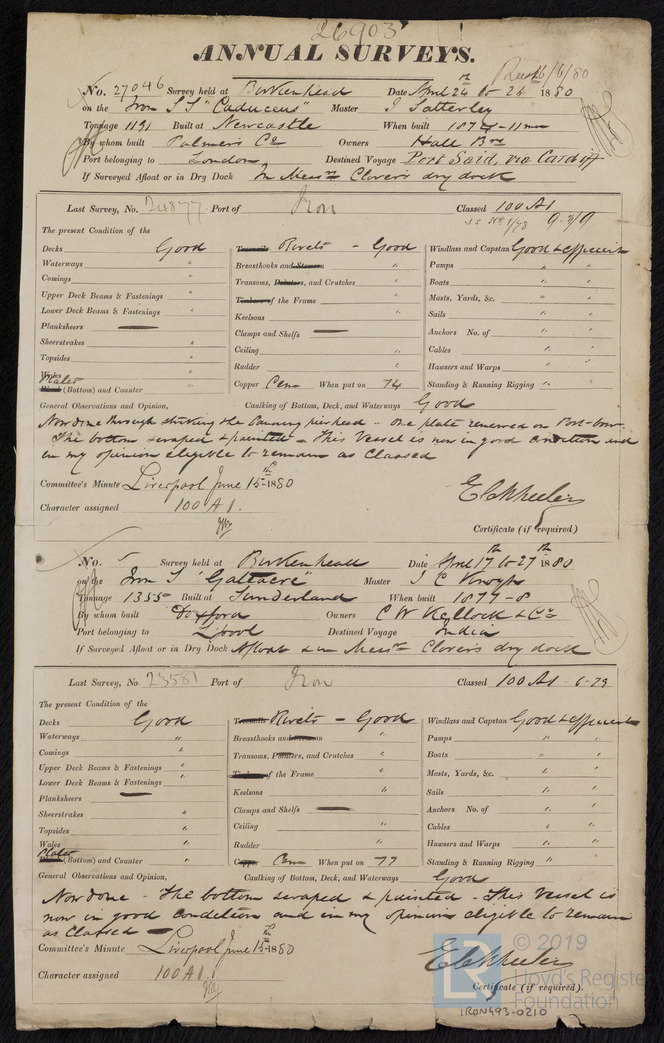 26903
ANNUAL SURVEYS.
16/6/80
No. 27046 Survey held at Birkenhead Date April 24th to 26 1880
on the Iron SS "Caduceus" Master J Satterley
Tonnage 1191 Built at Newcastle When built 187 - 11 mo
By whom built Palmers Co Owners Hall Bros
Port belonging to London Destined Voyage Port Said, via Cardiff
If Surveyed Afloat or in Dry Dock In Messrs Clover's dry dock
Last Survey, No. 24877 Port of Iron Classed 100 A1
SS No 1/78 9.79
The present Condition of the
Decks Good Treenails Rivets - Good Windlass and Capstan Good & efficient
Waterways " Breasthooks and Stemson " Pumps " "
Comings " Transoms, Pointers, and Crutches " Boats " "
Upper Deck Beams & Fastenings " Timbers of the Frame " Masts, Yards, &c. " "
Lower Deck Beams & Fastenings " Keelsons " Sails " "
Planksheers — Clamps and Shelfs — Anchors No. of " "
Sheerstrakes " Ceiling " Cables " "
Topsides " Rudder " Hawsers and Warps " "
Wales
Plates (Bottom) and Counter " Copper Cem When put on 74 Standing & Running Rigging " "
General Observations and Opinion, Caulking of Bottom, Deck, and Waterways Good
Now done through striking the Canning pierhead - one plate renewed on Port-bow.
The bottom scraped & painted - This Vessel is now in good condition and
in my opinion eligible to remain as Classed
Committee's Minute Liverpool June 15th 1880
Character assigned 100 A1.
E C Wheeler
Certificate (if required)
No. " Survey held at Birkenhead Date April 17th to 27th 1880
on the Iron S "Gateacre" Master J C
Tonnage 1355 Built at Sunderland When built 1877-8
By whom built Doxford Owners C W Kellock & Co
Port belonging to L'pool Destined Voyage India
If Surveyed Afloat or in Dry Dock Afloat & in Messrs Clover's dry dock
Last Survey, No. 23581 Port of Iron Classed 100 A1 - 6-79
The present Condition of the
Decks Good Treenails Rivets - Good Windlass and Capstan Good & efficient
Waterways " Breasthooks and Stemson " Pumps " "
Comings " Transoms, Pointers, and Crutches " Boats " "
Upper Deck Beams & Fastenings " Timbers of the Frame " Masts, Yards, &c. " "
Lower Deck Beams & Fastenings " Keelsons " Sails " "
Planksheers — Clamps and Shelfs — Anchors No. of " "
Sheerstrakes " Ceiling " Cables " "
Topsides " Rudder " Hawsers and Warps " "
Wales "
Plates (Bottom) and Counter " Copper Cem When put on 77 Standing & Running Rigging "
General Observations and Opinion, Caulking of Bottom, Deck, and Waterways Good
Now done - The bottom scraped & painted - This Vessel is
now in good condition and in my opinion eligible to remain
as Classed -
Committee's Minute Liverpool June 15th 1880
Character assigned 100 A1.
E C Wheeler
Certificate (if required).
© 2019
Lloyd's Register
Foundation
LR
IRON493-0210